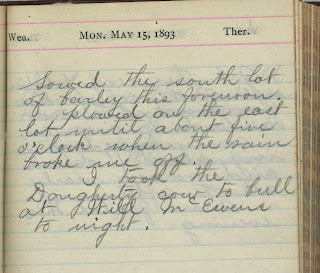 Wea. MON. MAY 15, 1893 Ther.
Sowed the south lot
of barley this forenoon.
Plowed on the east
lot until about five
o'clock when the rain
broke me off.
I took the
Dougherty cow to bull
at Will McEwens
to night.